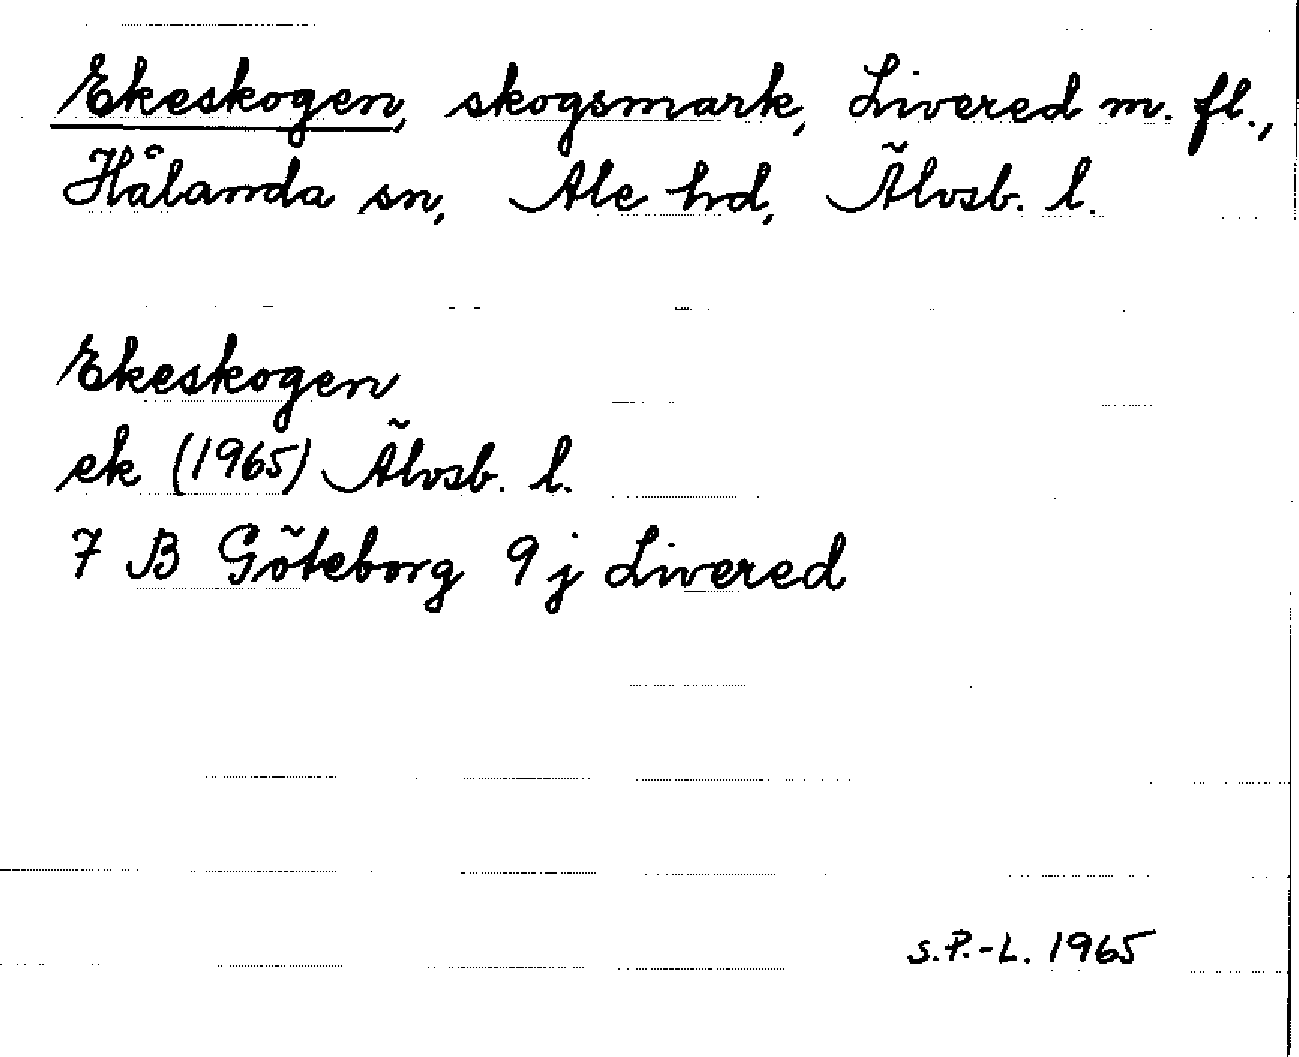 Ekeskogen, skogsmark, Livered m. fl.,
Hålanda sn, Ale hd, Älvsb. l.
Ekeskogen
ek (1965) Älvsb. l.
7 B Göteborg 9 j Livered
S.P.-L. 1965